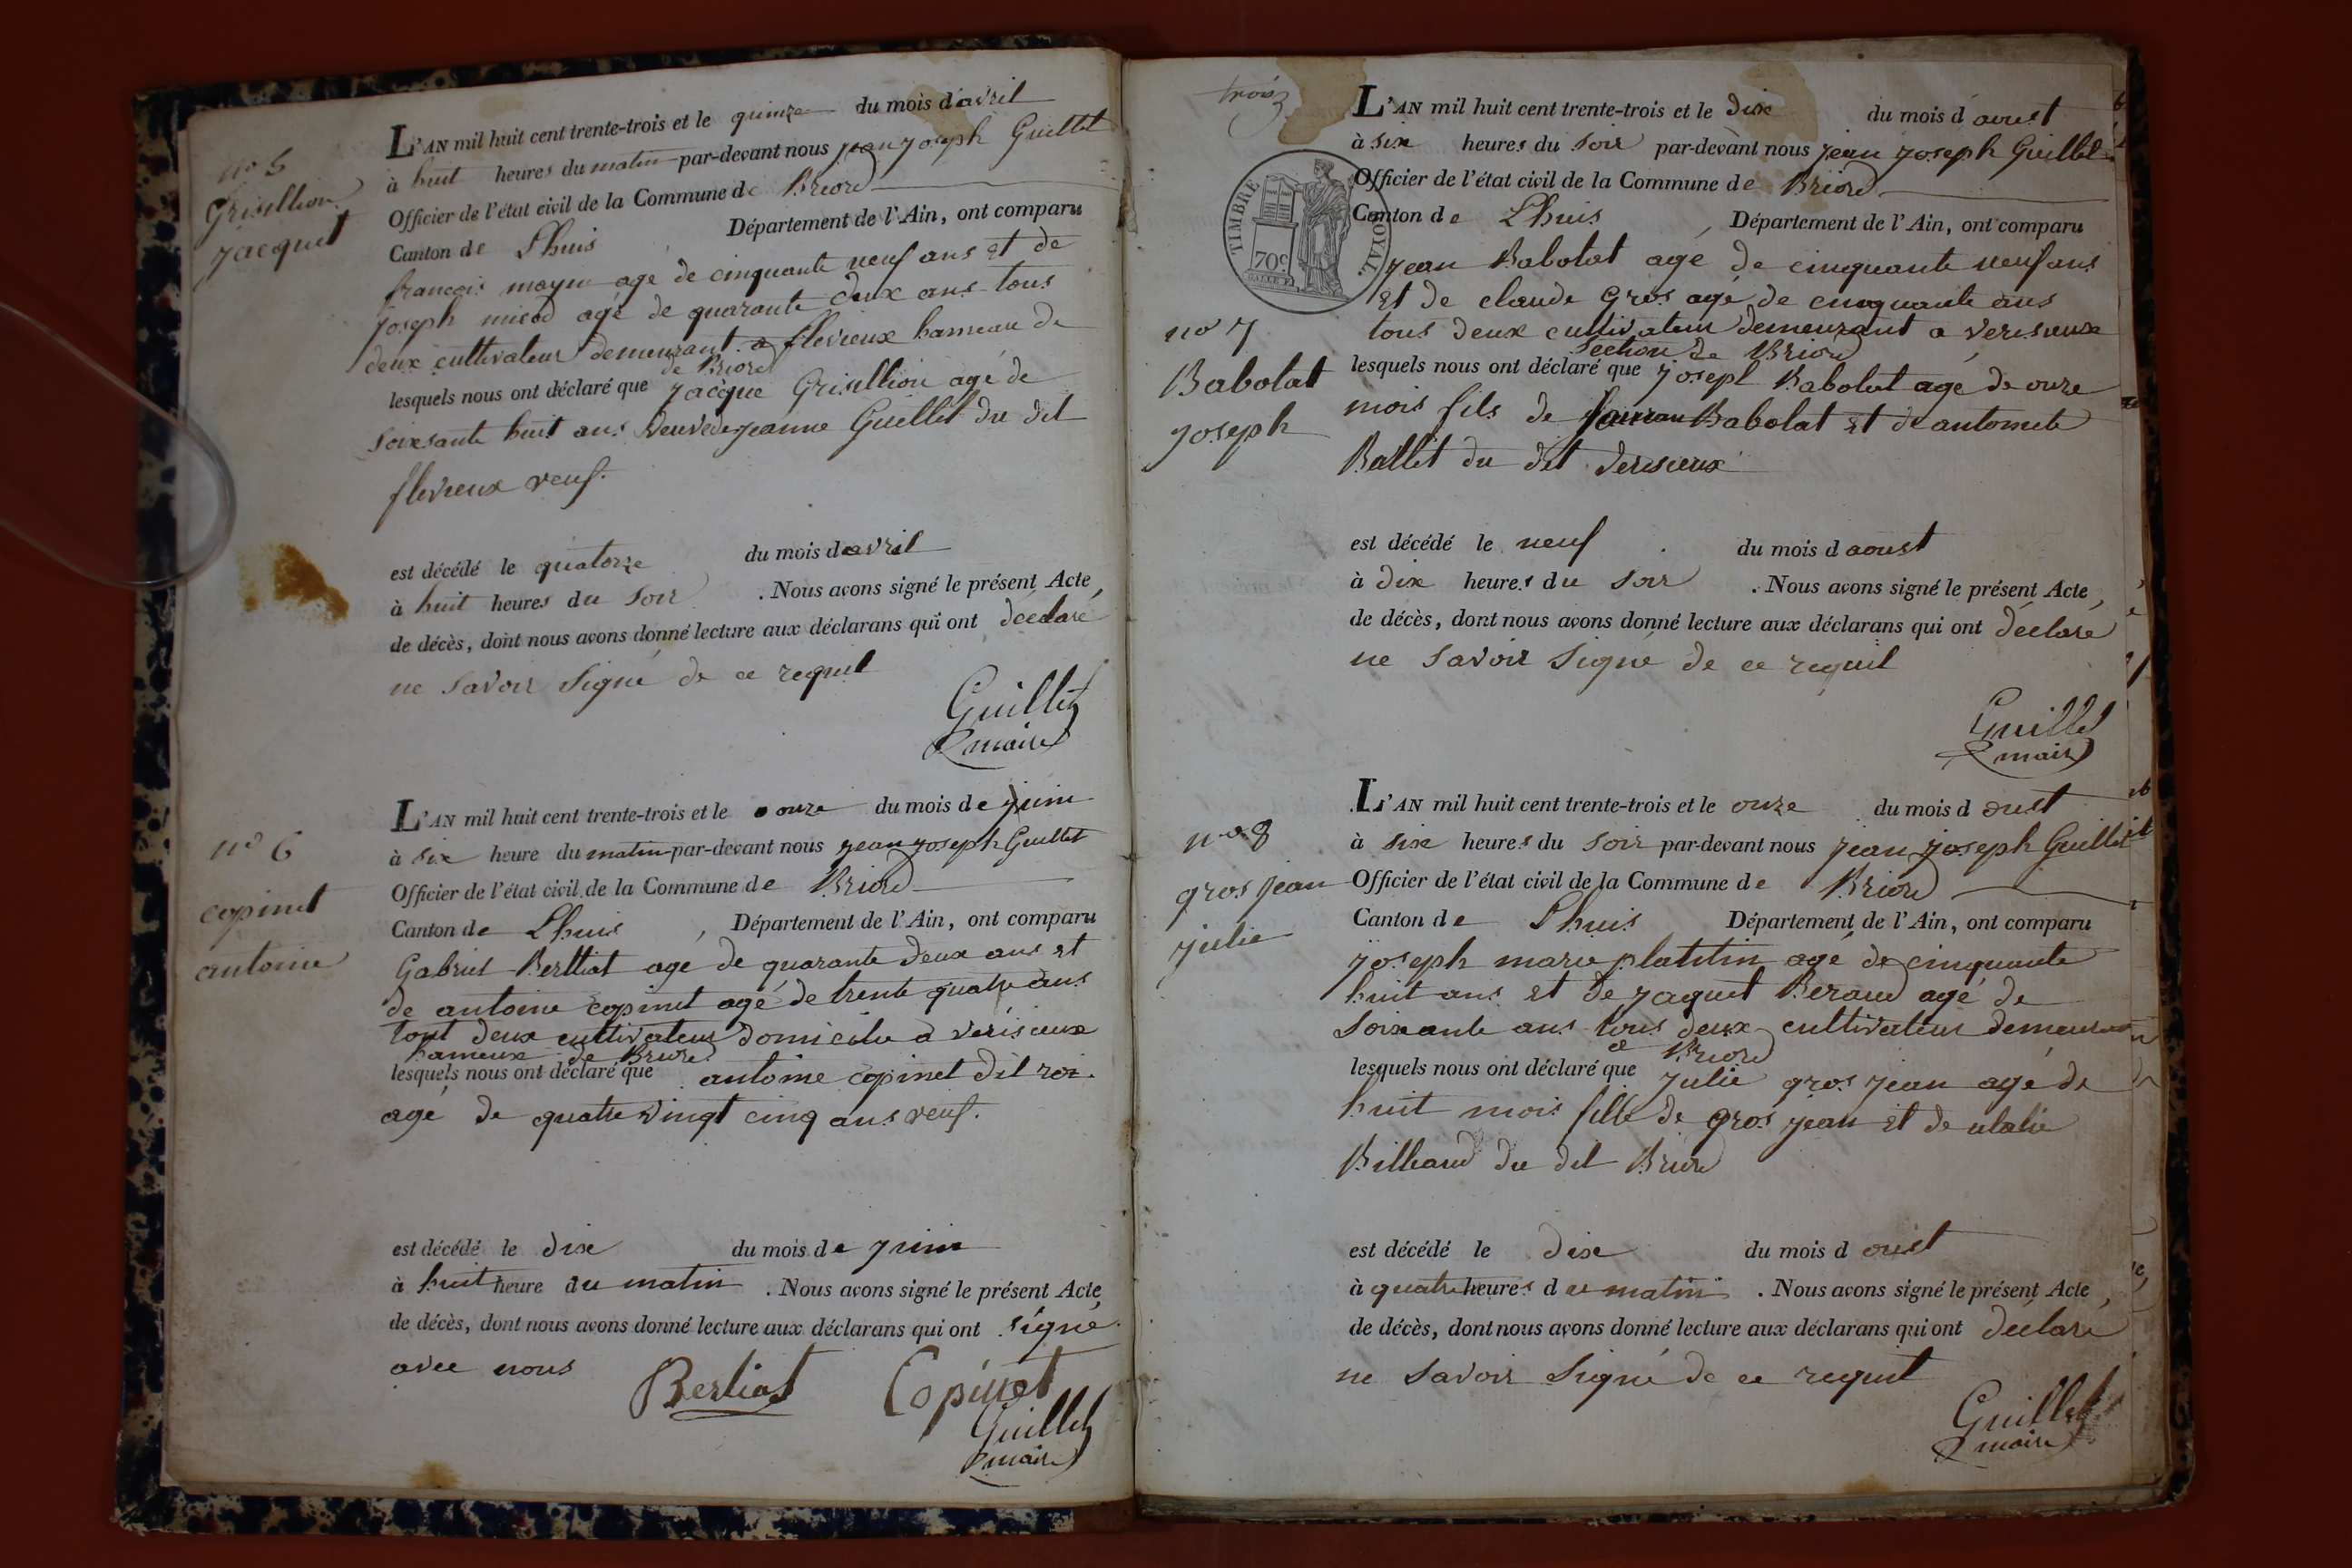 no 5
Grisillion
jacquet
L'AN mil huit cent trente-trois et le quinze du mois d'avril
à huit heures du matin par-devant nous jean joseph Guillet
Officier de l'état civil de la Commune de Briord
Canton de Lhuis Département de l'Ain, ont comparu
francois moyn agé de cinquante neuf ans et de
joseph micod agé de quarante deux ans tous
deux cultivateur demeurant a flevieux hameau de
de Briord
lesquels nous ont déclaré que jacque Grisillion agé de
soixsante huit ans veuve de jeanne Guillet du dit
flevieux veuf.
est décédé le quatorze du mois d avril
à huit heures du soir . Nous avons signé le présent Acte
de décès, dont nous avons donné lecture aux déclarans qui ont déclaré
ne savoir signé de ce requit
Guillet
maire
no 6
copinet
antoine
L'AN mil huit cent trente-trois et le onze du mois de juin
à six heure du matin par-devant nous jean joseph Guillet
Officier de l'état civil de la Commune de Briord
Canton de Lhuis , Département de l'Ain, ont comparu
Gabriel Berttiat agé de quarante deux ans et
de antoine copinet agé de trente quatre ans
tout deux cultivateur domicilie a verisieux
hameux de Briord
lesquels nous ont déclaré que antoine copinet dit roi.
agé de quatre vingt cinq ans veuf.
est décédé le dix du mois de juin
à huit heure du matin . Nous avons signé le présent Acte
de décès, dont nous avons donné lecture aux déclarans qui ont signé
avec nous
Bertiat Copinet
Guillet
maire
trois
TIMBRE ROYAL.
70c
L'AN mil huit cent trente-trois et le dix du mois d aoust
à six heures du soir par-devant nous jean joseph Guillet
Officier de l'état civil de la Commune de Briord
Canton de Lhuis , Département de l'Ain, ont comparu
jean Babolat agé de cinquante neuf ans
et de claude Gros agé de cinquante ans
no 7
Babolat
joseph
tous deux cultivateur demeurant a verisieux
section de Briord
lesquels nous ont déclaré que josepl Babolat agé de onze
mois fils de Babolat et de antoinete
Ballet du dit verisieux
est décédé le neuf du mois d aoust
à dix heures du soir . Nous avons signé le présent Acte
de décès, dont nous avons donné lecture aux déclarans qui ont déclaré
ne savoir signé de ce requit
Guillet
maire
no 8
gros jean
julie
L'AN mil huit cent trente-trois et le onze du mois d oust
à six heures du soir par-devant nous jean joseph Guillet
Officier de l'état civil de la Commune de Briord
Canton de Lhuis Département de l'Ain, ont comparu
joseph marie platitin agé de cinquante
huit ans et de jaquet Beraud agé de
soixante ans tous deux cultivateur demeurant
a Briord
lesquels nous ont déclaré que julie gros jean agé de
huit mois fille de gros jean et de ulalie
Billiaud du dit Briord
est décédé le dix du mois d oust
à quatre heures du matin . Nous avons signé le présent Acte
de décès, dont nous avons donné lecture aux déclarans qui ont déclaré
ne savoir signé de ce requit
Guillet
maire